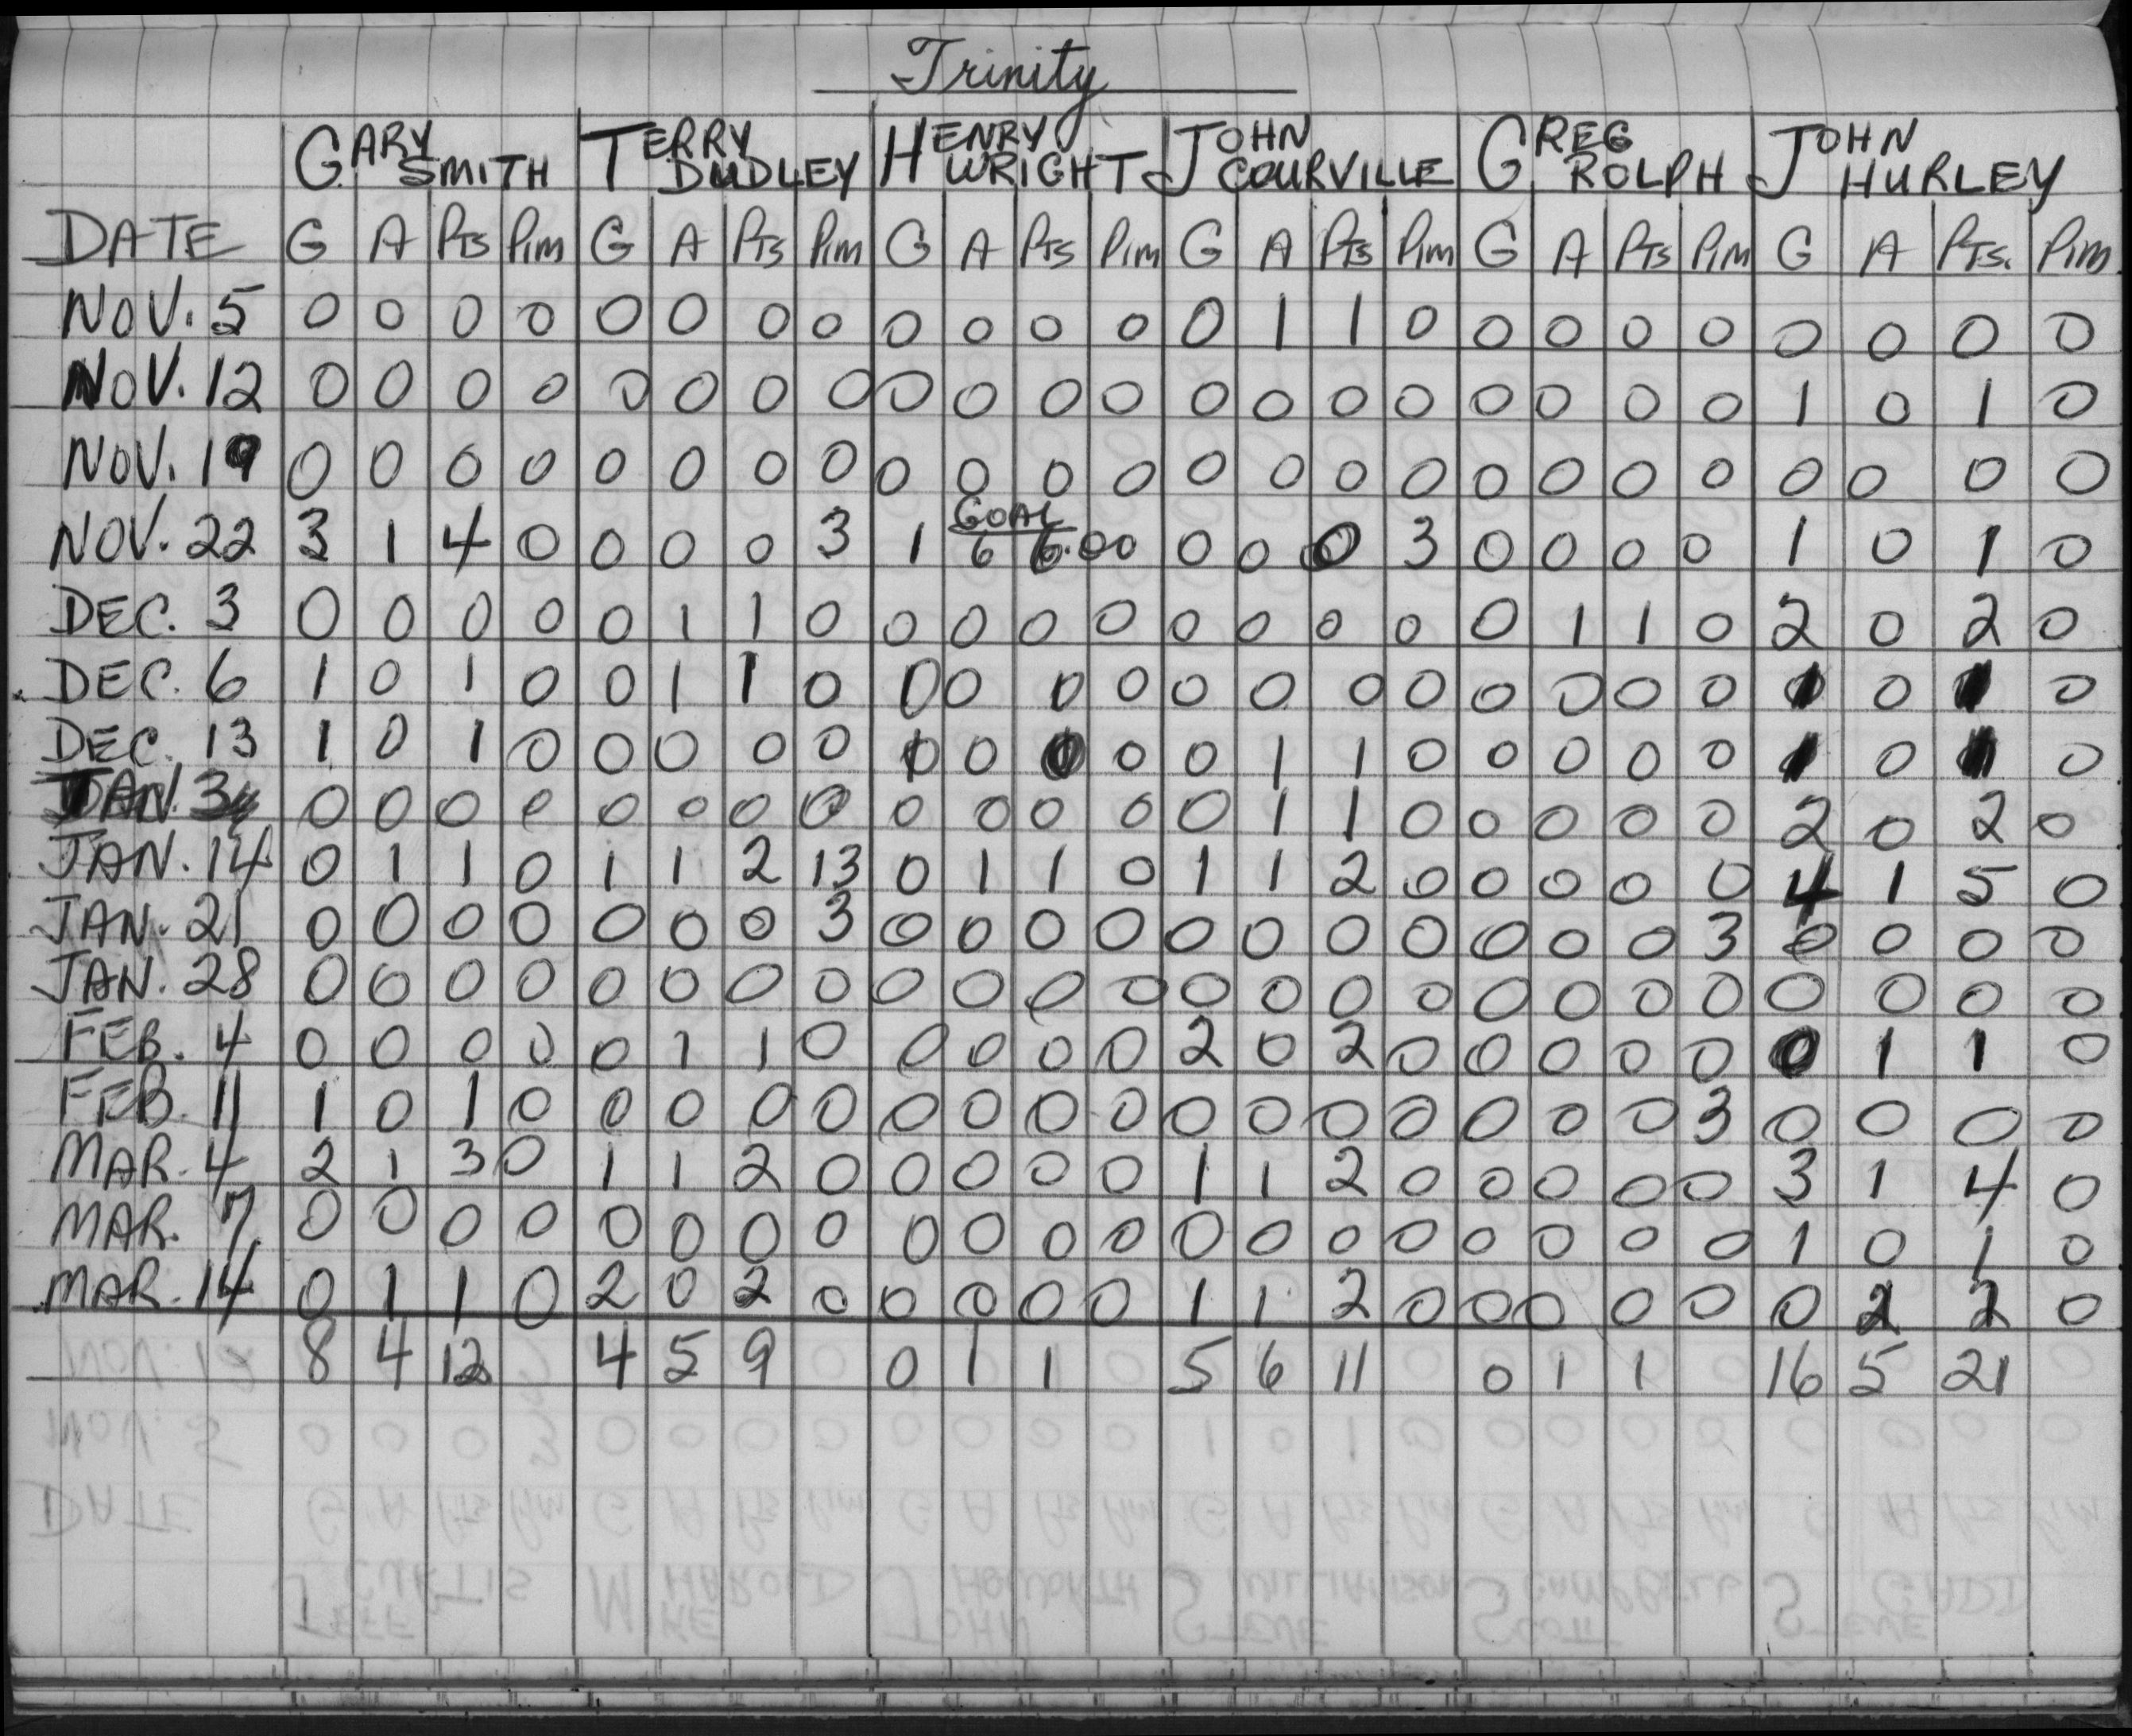 Trinity
GARY SMITH TERRY DUDLEY HENRY WRIGHT JOHN COURVILLE GREG ROLPH JOHN HURLEY
DATE G A Pts Pim G A Pts Pim G A Pts Pim G A Pts Pim G A Pts Pim G A Pts. Pim
NOV. 5 0 0 0 0 0 0 0 0 0 0 0 0 0 1 1 0 0 0 0 0 0 0 0 0
NOV. 12 0 0 0 0 0 0 0 0 0 0 0 0 0 0 0 0 0 0 0 0 1 0 1 0
NOV. 19 0 0 0 0 0 0 0 0 0 0 0 0 0 0 0 0 0 0 0 0 0 0 0 0
GOAL
NOV. 22 3 1 4 0 0 0 0 3 1 6 6.00 0 0 0 3 0 0 0 0 1 0 1 0
DEC. 3 0 0 0 0 0 1 1 0 0 0 0 0 0 0 0 0 0 1 1 0 2 0 2 0
DEC. 6 1 0 1 0 0 1 1 0 0 0 0 0 0 0 0 0 0 0 0 0 1 0 1 0
DEC. 13 1 0 1 0 0 0 0 0 0 0 0 0 0 1 1 0 0 0 0 0 1 0 1 0
JAN. 3 0 0 0 0 0 0 0 0 0 0 0 0 0 1 1 0 0 0 0 0 2 0 2 0
JAN. 14 0 1 1 0 1 1 2 13 0 1 1 0 1 1 2 0 0 0 0 0 4 1 5 0
JAN. 21 0 0 0 0 0 0 0 3 0 0 0 0 0 0 0 0 0 0 0 3 0 0 0 0
JAN. 28 0 0 0 0 0 0 0 0 0 0 0 0 0 0 0 0 0 0 0 0 0 0 0 0
FEB. 4 0 0 0 0 0 1 1 0 0 0 0 0 2 0 2 0 0 0 0 0 0 1 1 0
FEB. 11 1 0 1 0 0 0 0 0 0 0 0 0 0 0 0 0 0 0 0 3 0 0 0 0
MAR. 4 2 1 3 0 1 1 2 0 0 0 0 0 1 1 2 0 0 0 0 0 3 1 4 0
MAR. 7 0 0 0 0 0 0 0 0 0 0 0 0 0 0 0 0 0 0 0 0 1 0 1 0
MAR. 14 0 1 1 0 2 0 2 0 0 0 0 0 1 1 2 0 0 0 0 0 0 2 2 0
8 4 12 4 5 9 0 1 1 5 6 11 0 1 1 16 5 21